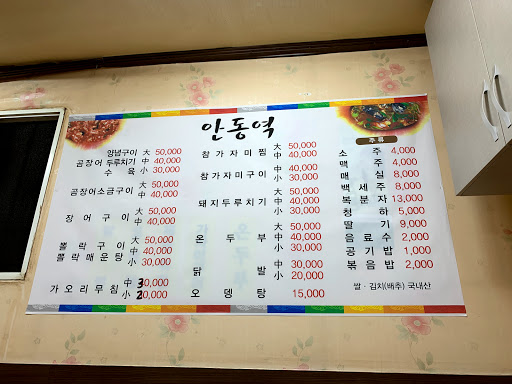 안동역
양념구이 大 50,000
곰장어 두루치기 中 40,000
수육 小 30,000
곰장어소금구이 大 50,000
中 40,000
小 30,000
장어구이 大 50,000
中 40,000
小 30,000
뽈락구이 大 50,000
뽈락매운탕 中 40,000
小 30,000
가오리무침 中 30,000
小 20,000
참가자미찜 大 50,000
中 40,000
참가자미구이 大 50,000
中 40,000
小 30,000
돼지두루치기 大 50,000
中 40,000
小 30,000
온두부 大 50,000
中 40,000
小 30,000
닭발 中 30,000
小 20,000
오뎅탕 15,000
주류
소주 4,000
맥주 4,000
매실 8,000
백세주 8,000
복분자 13,000
청하 5,000
딸기 9,000
음료수 2,000
공기밥 1,000
볶음밥 2,000
쌀·김치(배추) 국내산